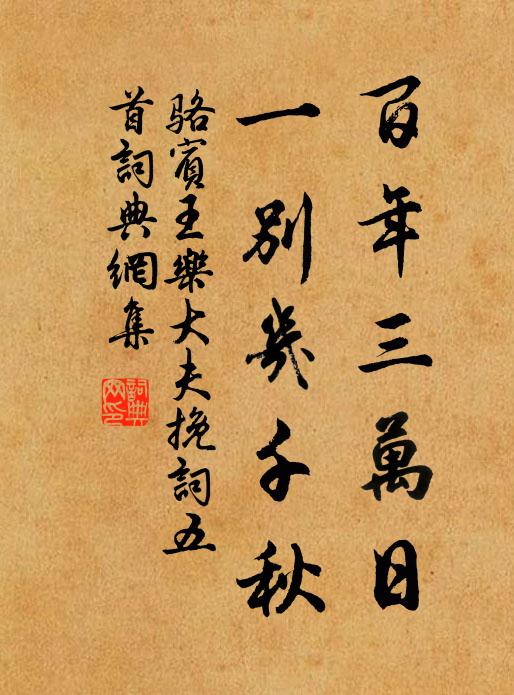 百年三萬日
一別幾千秋
駱賓王樂大夫挽詞五
首詞典網集
詞典網印